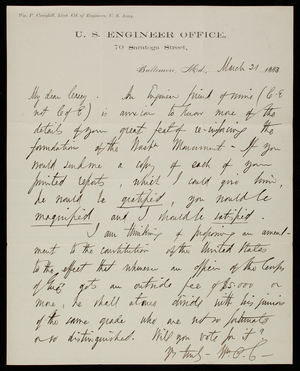 Wm. P. Craighill, Lieut. Col. of Engineers, U. S. Army.
U. S. ENGINEER OFFICE,
70 Saratoga Street,
Baltimore, Md., March 21, 1883
My dear Casey. An Engineer friend of mine (C.E
not C of E) is anxious to know more of the
details of your great feat of re-enforcing the
foundation of the Wash. Monument - If you
would send me a copy of each of your
printed reports, which I could give him,
he would be gratified, you would be
magnified and I should be satisfied.
I am thinking of proposing an amend-
ment to the constitution of the United States
to the effect that whenever an officer of the Corps
of Eng. gets an outside fee of $5.000 or
more, he shall divide with his juniors
of the same grade who are not so fortunate
or so distinguished. Will you vote for it?
Yrs truly - Wm P. C-